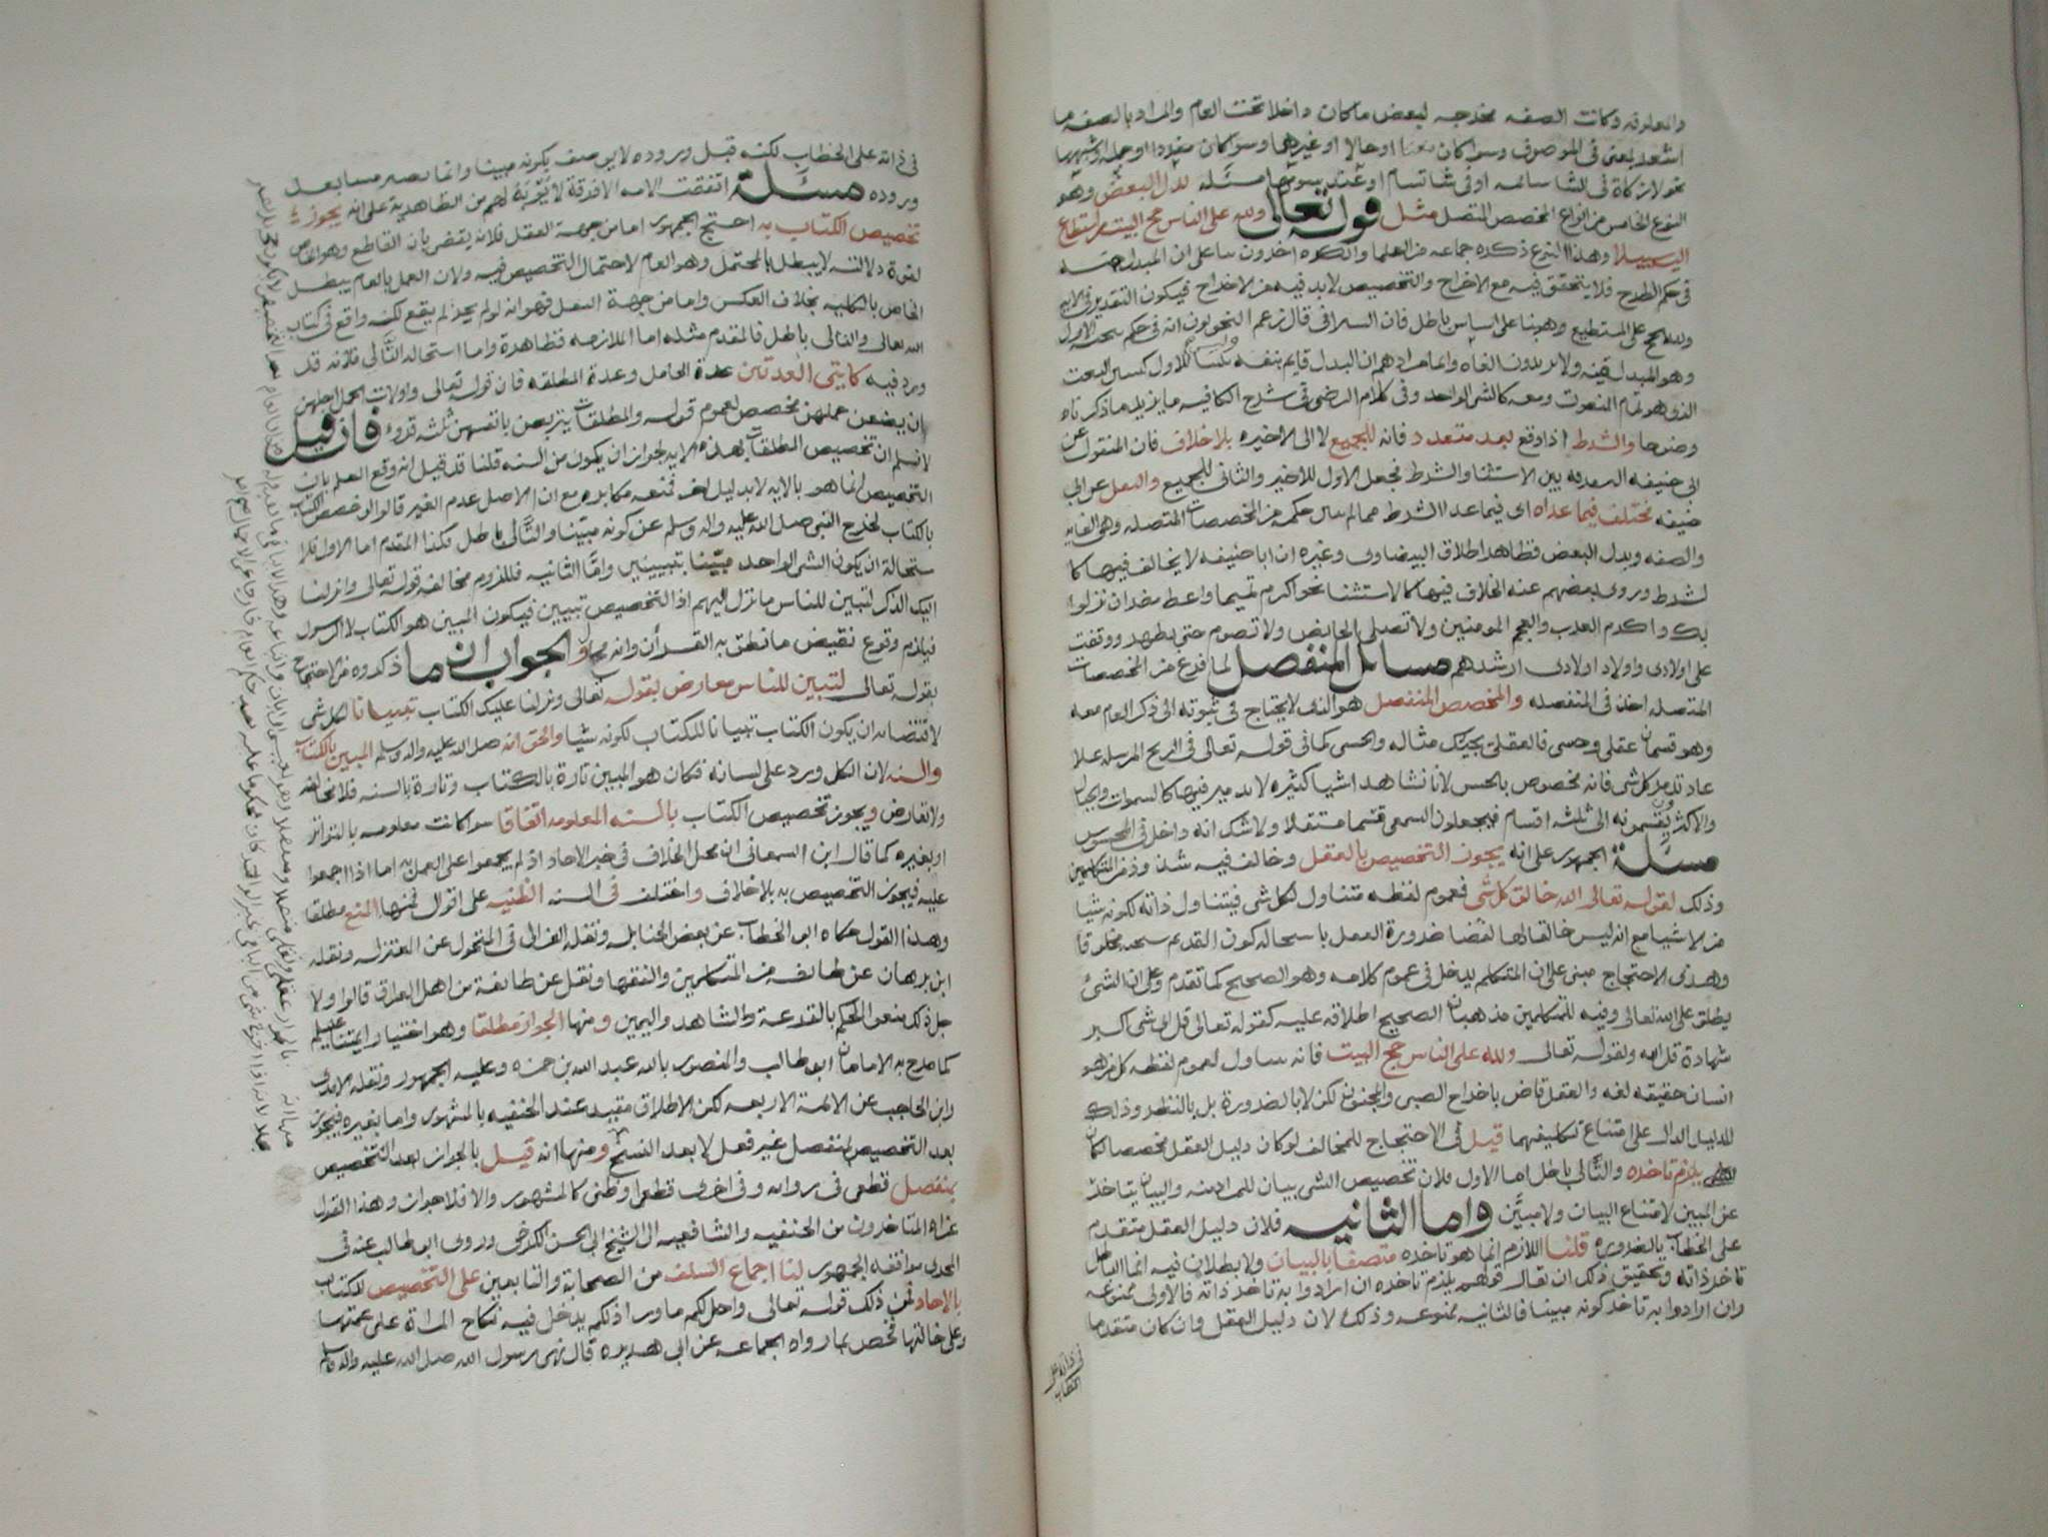 والمعلوفه وكانت الصفه مخرجه لبعض ماكان داخلا تحت العام والمراد بالصفه ما
اشعر بمعنى فى الموصوف وسواكان نعتا او حالا او غيرهما وسواكان مفردا او جمله وشبهها
نحو لا زكاة فى الشا سائمه او فى شاتسام او عند سومها مسئله بدل البعض وهو
النوع الخامس من انواع المخصص المتصل مثل قوله تعالى ولله على الناس حج البيت من استطاع
اليه سبيلا وهذا النوع ذكره جماعه من العلما والكثره اخرون بناعلى ان المبدل منه
فى حكم الطرح فلا يتحقق فيه مع الاخراج والتخصيص لابد فيه من الاخراج فيكون التقدير فى الايه
ولله الحج على المستطيع وهو بنا على اساس باطل فان السيرافى قال زعم النحويون انه فى حكم تنحيه الاول
وهو المبدل منه ولا يريدون الغاه وانما مرادهم ان البدل قايم بنفسه وليس مبينا للاول كتبيين النعت
الذى هو تمام المنعوت ومعه كالشى الواحد وفى كلام الرضى فى شرح الكافيه مايزيد ماذكرناه
وضوحا والشرط اذا وقع بعد متعدد فانه للجميع لا الى الاخيره بلا خلاف فان المنقول عن
ابى حنيفه التفرقه بين الاستثنا والشرط فجعل الاول للاخير والثانى للجميع والنقل عن ابى
حنيفه مختلف فيما عداه اى فيما عدا الشرط ممالم يبين حكمه من المخصصات المتصله وهى الغايه
والصفه وبدل البعض فظاهر اطلاق البيضاوى وغيره ان ابا حنيفه لا يخالف فيها كا
لشرط وروى بعضهم عنه الخلاف فيها كالاستثنا نحو اكرم تميما واعط مضر ان نزلوا
بك واكرم العرب والعجم المومنين ولا تصلى الحايض ولا تصوم حتى تطهر ووقفت
على اولادى واولاد اولادى ارشدهم مسائل المنفصل لما فرغ من المخصصات
المتصله اخذ فى المنفصله والمخصص المنفصل هو الذى لا يحتاج فى ثبوته الى ذكر العام معه
وهو قسمان عقلى وحسى فالعقلى يجيك مثاله والحسى كما فى قوله تعالى فى الريح المرسله على
عاد تدمر كل شى فانه مخصوص بالحس لانا نشاهد اشيا كثيره لا تدمير فيها كالسموات والجبال
والاكثرون يقسمونه الى ثلثه اقسام فيجعلون السمعى قسما مستقلا ولا شك انه داخل فى المحسوس
مسئلة الجمهور على انه يجوز التخصيص بالعقل وخالف فيه شذوذ من المتكلمين
وذلك لقوله تعالى الله خالق كل شى فعموم لفظه متناول لكل شى فيتناول ذاته لكونه شيا
من الاشيا مع انه ليس خالقا لها لقضا ضرورة العقل باستحاله كون القديم مخلوقا
وهذى الاحتجاج مبنى على ان المتكلم يدخل فى عموم كلامه وهو الصحيح كما تقدم وعلى ان الشئ
يطلق على الله تعالى وفيه للمتكلمين مذهبان الصحيح اطلاقه عليه كقوله تعالى قل اى شى اكبر
شهادة قل الله ولقوله تعالى ولله على الناس حج البيت فانه يتناول لعموم لفظه كل من هو
انسان حقيقه لغه والعقل قاض باخراج الصبى والمجنون لكن لا بالضرورة بل بالنظر وذلك
للدليل الدال على امتناع تكليفهما قيل فى الاحتجاج للمخالف لو كان دليل العقل مخصصا لكان
يلزم تاخره والتالى باطل اما الاول فلان تخصيص الشى بيان للمراد منه والبيان يتاخر
عن المبين لامتناع البيان ولا مبيَّن واما الثانيه فلان دليل العقل متقدم
على الخطاب بالضروره قلنا اللازم انما هو تاخره متصفا بالبيان ولا بطلان فيه انما الباطل
تاخر ذاته وتحقيق ذلك ان نقال قولهم يلزم تاخره ان ارادوا به تاخر ذاته فالاولى ممنوعه
وان ارادوا به تاخر كونه مبينا فالثانيه ممنوعه وذلك لان دليل العقل وان كان متقدما
فى ذاته على
الخطاب
فى ذاته على الخطاب لكنه قبل وروده لايوصف بكونه مبينا وانما يصير مبينا بعد
وروده مسئلة اتفقت الامه الا فرقة لا يُؤبَه لهم من الظاهرية على انه يجوز
تخصيص الكتاب به احتج الجمهور اما من جهة العقل فلانه يقضى بان القاطع وهو الخاص
لقوة دلالته لا يبطل بالمحتمل وهو العام لاحتمال التخصيص فيه ولان العمل بالعام يبطل
الخاص بالكليه بخلاف العكس واما من جهة النقل فهو انه لولم يجز لم يقع لكنه واقع فى كتاب
الله تعالى والتالى باطل فالمقدم مثله اما الملازمه فظاهرة واما استحاله التالى فلانه قد
ورد فيه كايتى العدتين عدة الحامل وعدة المطلقه فان قوله تعالى واولات الحمل اجلهن
ان يضعن حملهن مخصص لعموم قوله والمطلقات يتربصن بانفسهن ثلثه قروء فان قيل
لانسلم ان تخصيص المطلقات بهذه الايه لجواز ان يكون من السنه قلنا قد قيل انه وقع العلم بان
التخصيص انما هو بالايه لا بدليل اخر فمنعه مكابره مع ان الاصل عدم الغير قالوا لو خصص الكتاب
بالكتاب لخرج النبى صل الله عليه واله وسلم عن كونه مبيّنا والتّالى باطل فكذا المقدم اما الاول فلا
ستحالة ان يكون الشى الواحد مبيّنا بتبيينين وامّا الثانيه فللزوم مخالفه قوله تعالى وانزلنا
اليك الذكر لتبين للناس مانزل اليهم اذ التخصيص تبيين فيكون المبين هو الكتاب لا الرسول
فيلزم وقوع نقيض مانطق به القرأن وانه مح والجواب ان ما ذكروه من الاحتجاج
بقوله تعالى لتبين للناس معارض بقوله تعالى ونزلنا عليك الكتاب تبيانا لكل شى
لاقتضائه ان يكون الكتاب تبيانا للكتاب لكونه شيا والحق انه صل الله عليه واله وسلم المبين بالكتاب
والسنه لان الكل ورد على لسانه فكان هو المبين تارة بالكتاب وتارة بالسنه فلا مخالفه
ولا تعارض ويجوز تخصيص الكتاب بالسنه المعلومه اتفاقا سواكانت معلومه بالتواتر
او بغيره كما قال ابن السمعانى ان محل الخلاف فى خبر الاحاد اذ لم يجمعوا على العمل به اما اذا اجمعوا
عليه فيجوز التخصيص به بلاخلاف واختلف فى السنه الظنيه على اقوال فمنها المنع مطلقا
وهذا القول حكاه ابو الخطاب عن بعض الحنابله ونقله الغزالى فى المنخول عن المعتزله ونقله
ابن برهان عن طائفه من المتكلمين والفقها ونقل عن طائفة من اهل العراق قالوا ولا
جل ذلك منعوا الحكم بالقرعة والشاهد واليمين ومنها الجواز مطلقا وهو اختيار ائمتنا عليهم
كما صرح به الامامان ابو طالب والمنصور بالله عبد الله بن حمزه وعليه الجمهور ونقله الامدى
وابن الحاجب عن الائمة الاربعه لكن الاطلاق مقيد عند الحنفيه بالمشهور واما بغيره فيجوز
بعد التخصيص بمنفصل غير فعل لا بعد النسخ ومنها انه قيل بالجواز بعد التخصيص
بمنفصل قطعى فى روايه وفى اخرى قطعى او ظنى كالمشهور والا فلا جواز وهذا القول
عزاه المتاخرون من الحنفيه والشافعيه الى الشيخ ابى الحسن الكرخى وروى ابو طالب عنه فى
المجزى موافقه الجمهور لنا اجماع السلف من الصحابة والتابعين على التخصيص للكتاب
بالاحاد فمن ذلك قوله تعالى واحل لكم ماورا ذلكم يدخل فيه نكاح المراة على عمتها
وعلى خالتها فخص بما رواه الجماعه عن ابى هريره قال نهى رسول الله صل الله عليه واله وسلم